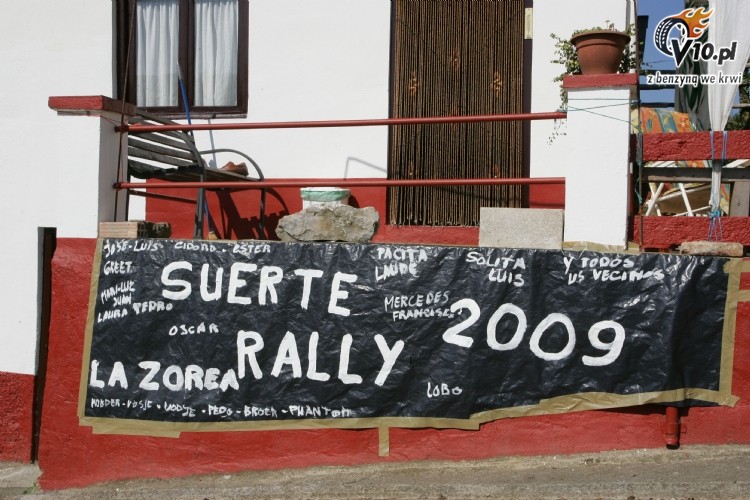 V10.pl
z benzyną we krwi
JOSE-LUIS - CIDORO - ESTER
GREET
MARI-LUZ
JUAN
LAURA PEDRO
OSCAR
PACITA
LAUDE
SOLITA
LUIS
Y TODOS
US VECINOS
MERCEDES
FRANCISCO
SUERTE
RALLY 2009
LA ZOREA
LOBO
PEDO - BROER - PHANTOM